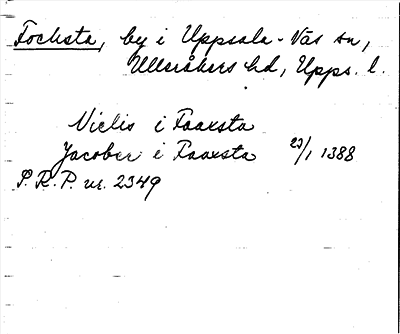 Focksta, by i Uppsala-Näs sn,
Ulleråkers hd, Upps. l.
Niclis i Foaxsta
Jacober i Foaxsta 23/1 1388
S.R.P. nr. 2349